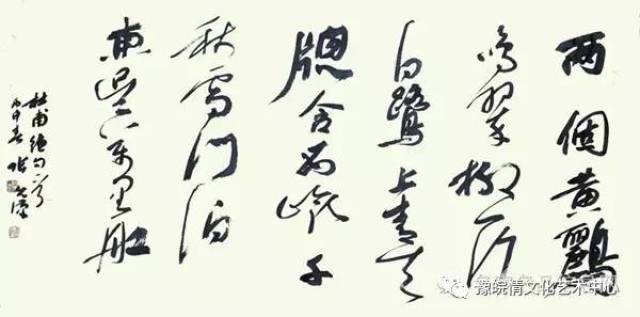 两個黄鸝
鳴翠柳一行
白鷺上青天
牕含西嶺千
秋雪門泊
東吳萬里船
杜甫絕句
丙申春 張
豫皖情文化艺术中心